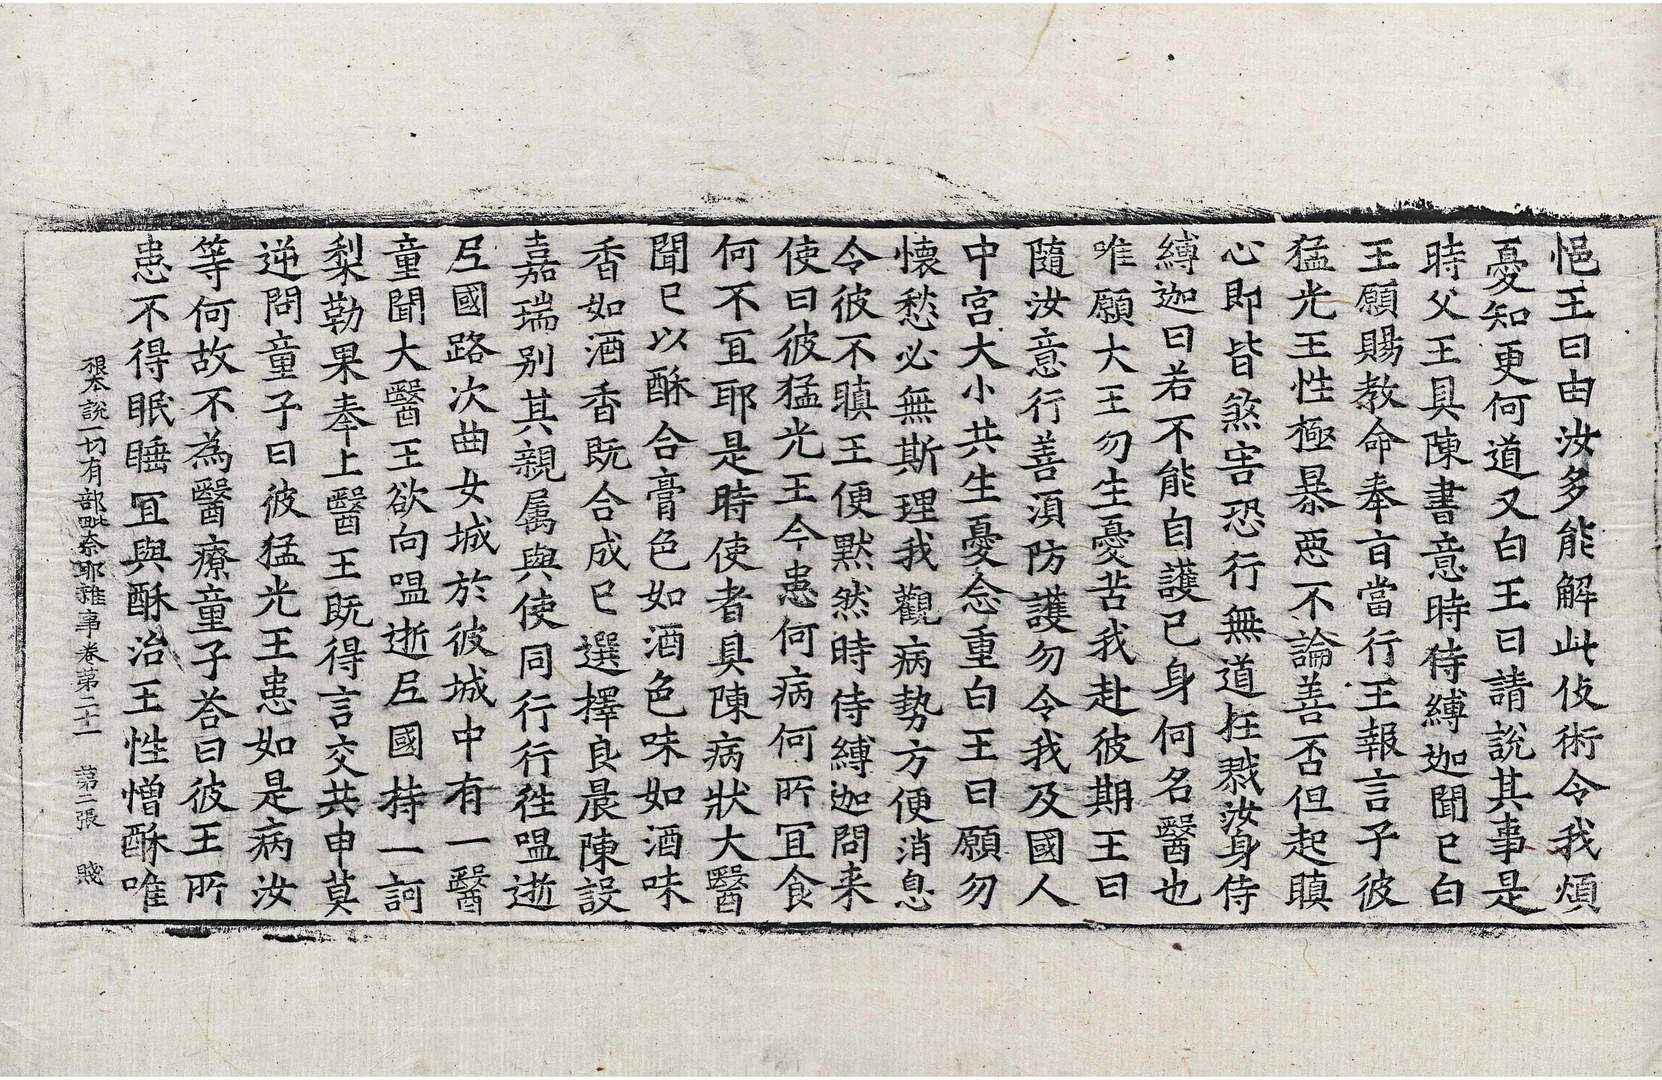 悒王曰由汝多能解此伎術令我煩
憂知更何道又白王曰請說其事是
時父王具陳書意時侍縛迦聞已白
王願賜教命奉言當行王報言子彼
猛光王性極暴惡不論善否但起瞋
心即皆煞害恐行無道狂戮汝身侍
縛迦曰若不能自護己身何名醫也
唯願大王勿生憂苦我赴彼期王曰
隨汝意行善須防護勿令我及國人
中宮大小共生憂念重白王曰願勿
懷愁必無斯理我觀病勢方便消息
令彼不瞋王便默然時侍縛迦問来
使曰彼猛光王今患何病何所冝食
何不冝耶是時使者具陳病狀大醫
聞已以酥合膏色如酒色味如酒味
香如酒香既合成已選擇良晨陳設
嘉瑞別其親属與使同行行徃嗢逝
𡰱國路次曲女城於彼城中有一醫
童聞大醫王欲向嗢逝𡰱國持一訶
梨勒果奉上醫王既得言交共申莫
逆問童子曰彼猛光王患如是病汝
等何故不為醫療童子荅曰彼王所
患不得眠睡冝與酥治王性憎酥唯
根本說一切有部毗奈耶雜事卷第二十一　第二張　賤